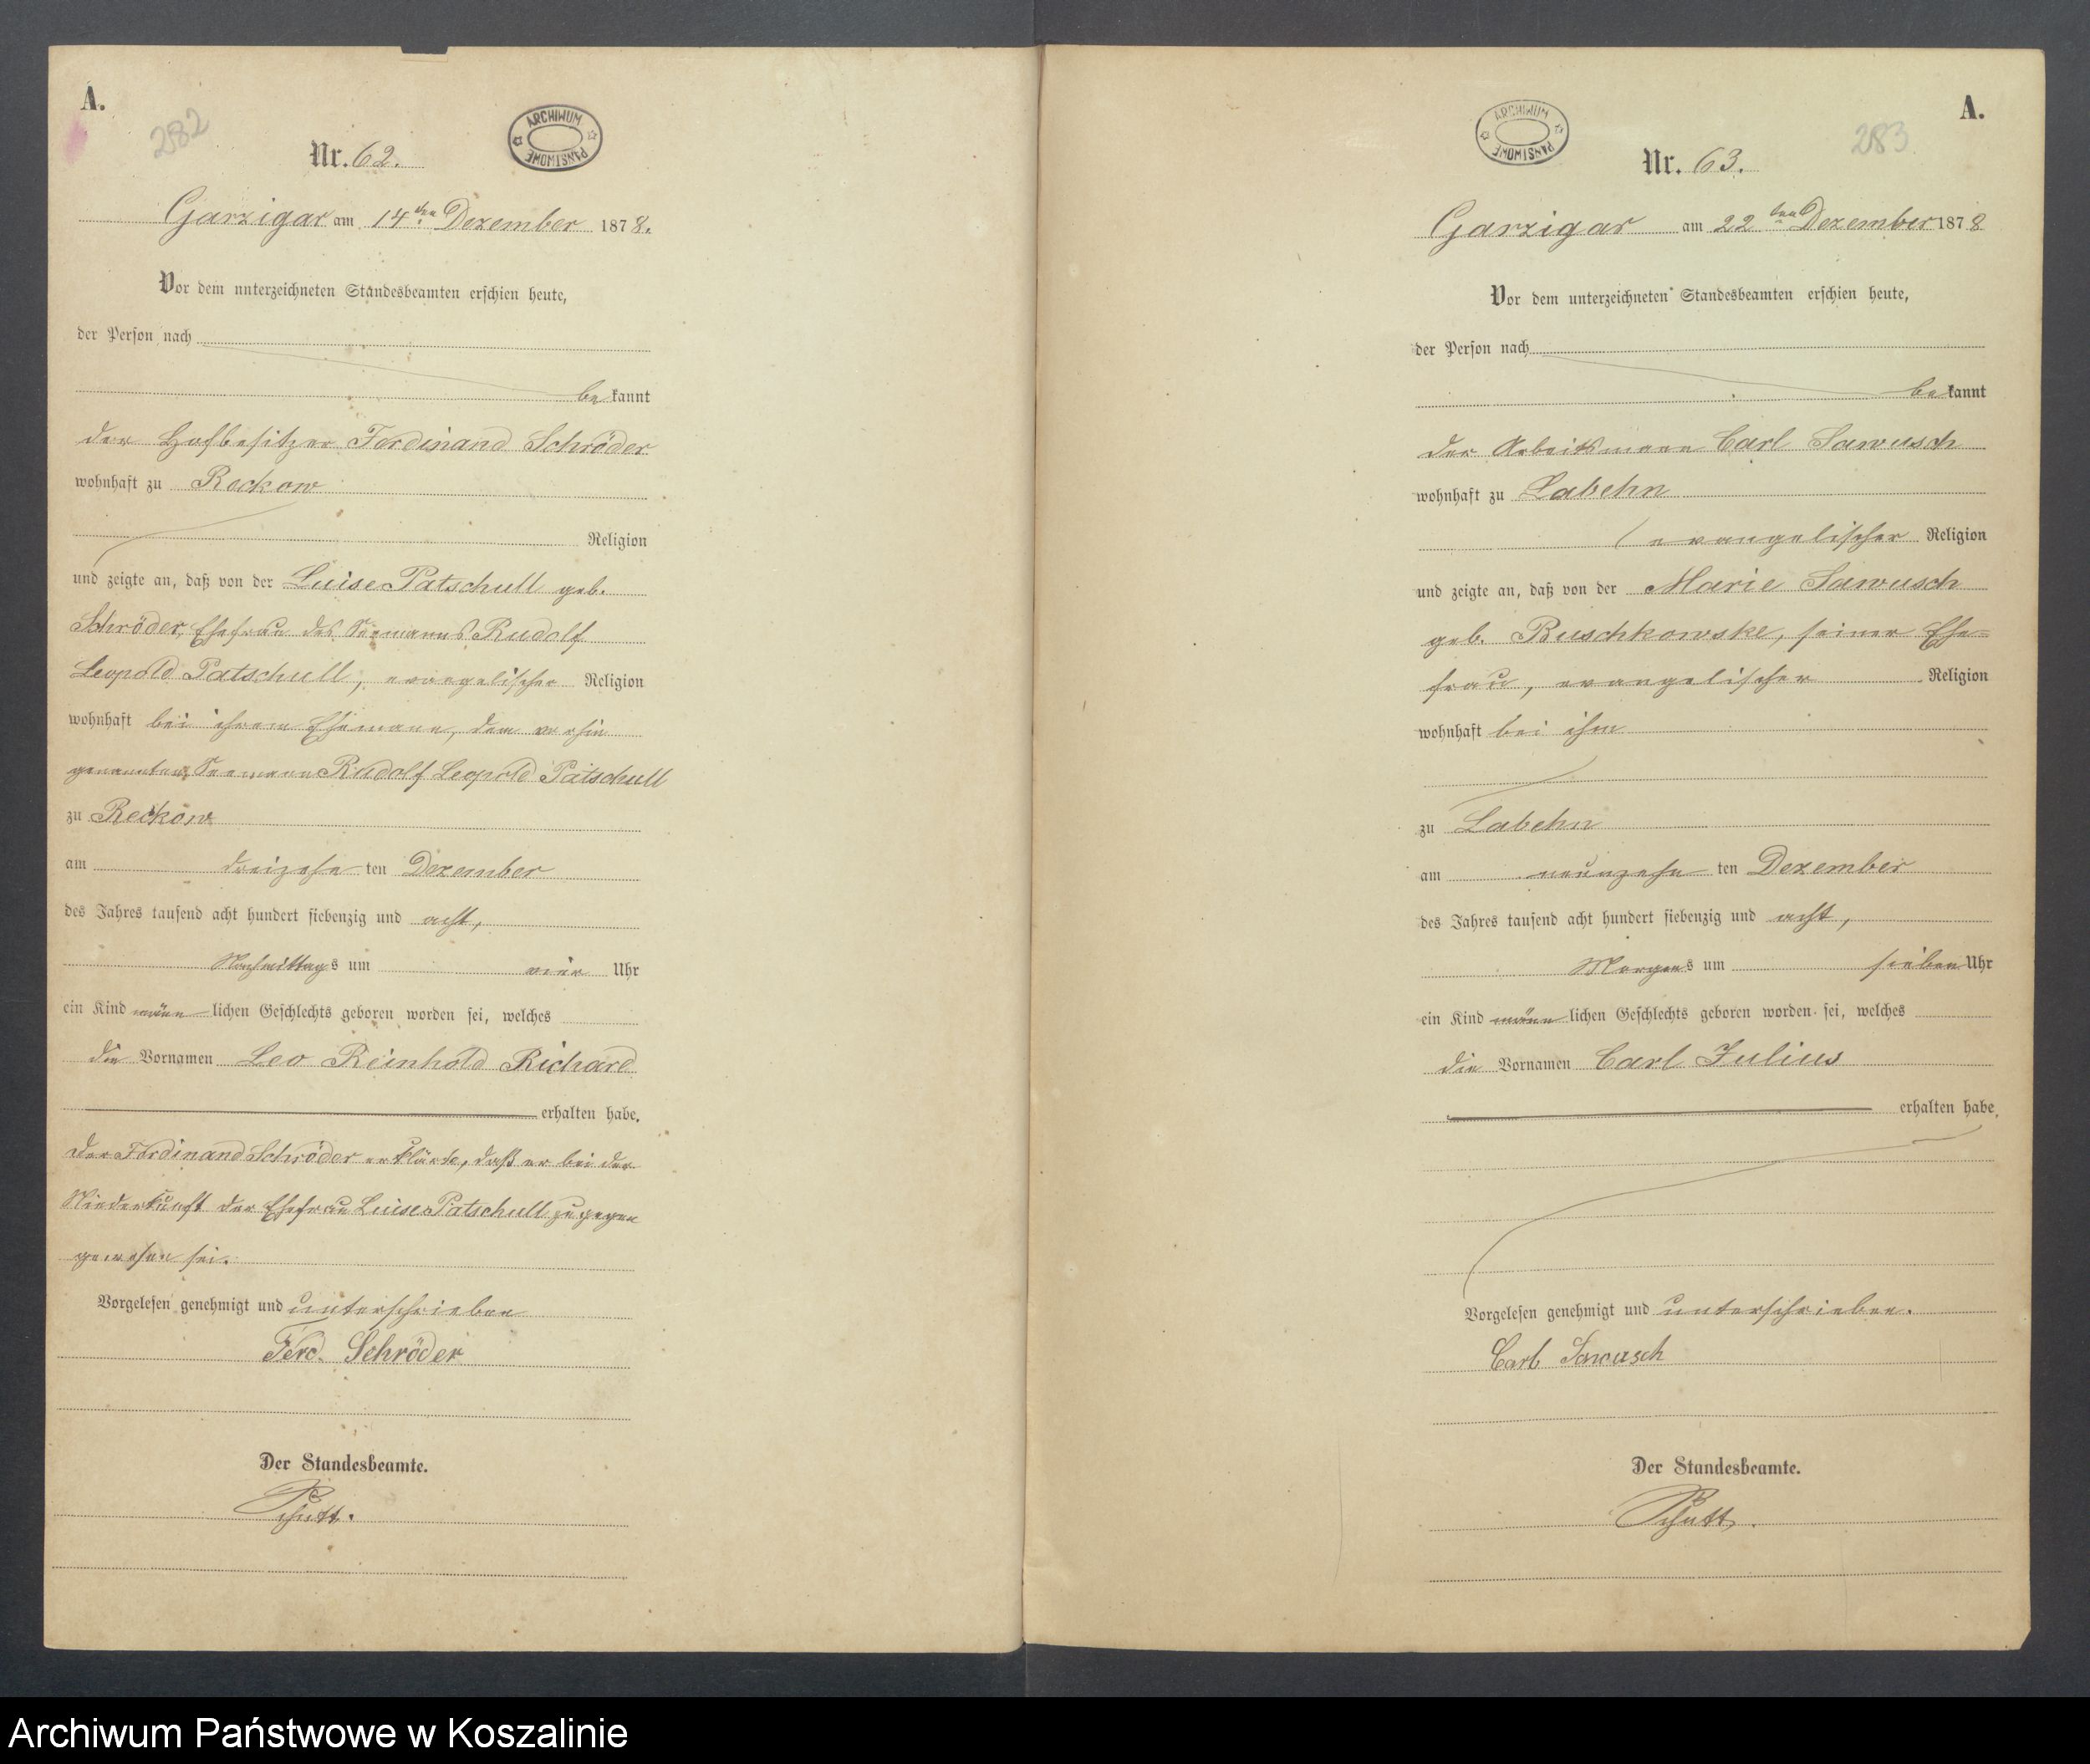 A.
282
ARCHIWUM PAŃSTWOWE
Nr. 62.
Garzigar am 14ten Dezember 1878.
Vor dem unterzeichneten Standesbeamten erschien heute,
der Person nach
bekannt
der Hofbesitzer Ferdinand Schröder
wohnhaft zu Reckow
Religion
und zeigte an, daß von der Luise Patschull geb.
Schröder, Ehefrau des Seemanns Rudolf
Leopold Patschull, evangelischer Religion
wohnhaft bei ihrem Ehemann, dem vorhin
genannten Seemann Rudolf Leopold Patschull
zu Reckow
am dreizehnten Dezember
des Jahres tausend acht hundert siebenzig und acht,
Nachmittags um vier Uhr
ein Kind männlichen Geschlechts geboren worden sei, welches
die Vornamen Leo Reinhold Richard
erhalten habe.
Der Ferdinand Schröder erklärte, daß er bei der
Niederkunft der Ehefrau Luise Patschull zugegen
gewesen sei.
Vorgelesen genehmigt und unterschrieben
Ferd. Schröder
Der Standesbeamte.
A.
283
ARCHIWUM PAŃSTWOWE
Nr. 63.
Garzigar am 22ten Dezember 1878
Vor dem unterzeichneten Standesbeamten erschien heute,
der Person nach
bekannt
der Arbeitsmann Carl Sawusch
wohnhaft zu Labehn
evangelischer Religion
und zeigte an, daß von der Marie Sawusch
geb. Buschkowske, seiner Ehe=
frau, evangelischer Religion
wohnhaft bei ihm
zu Labehn
am neunzehnten Dezember
des Jahres tausend acht hundert siebenzig und acht,
Morgens um sieben Uhr
ein Kind männlichen Geschlechts geboren worden sei, welches
die Vornamen Carl Julius
erhalten habe.
Vorgelesen genehmigt und unterschrieben.
Carl Sawusch
Der Standesbeamte.
Archiwum Państwowe w Koszalinie